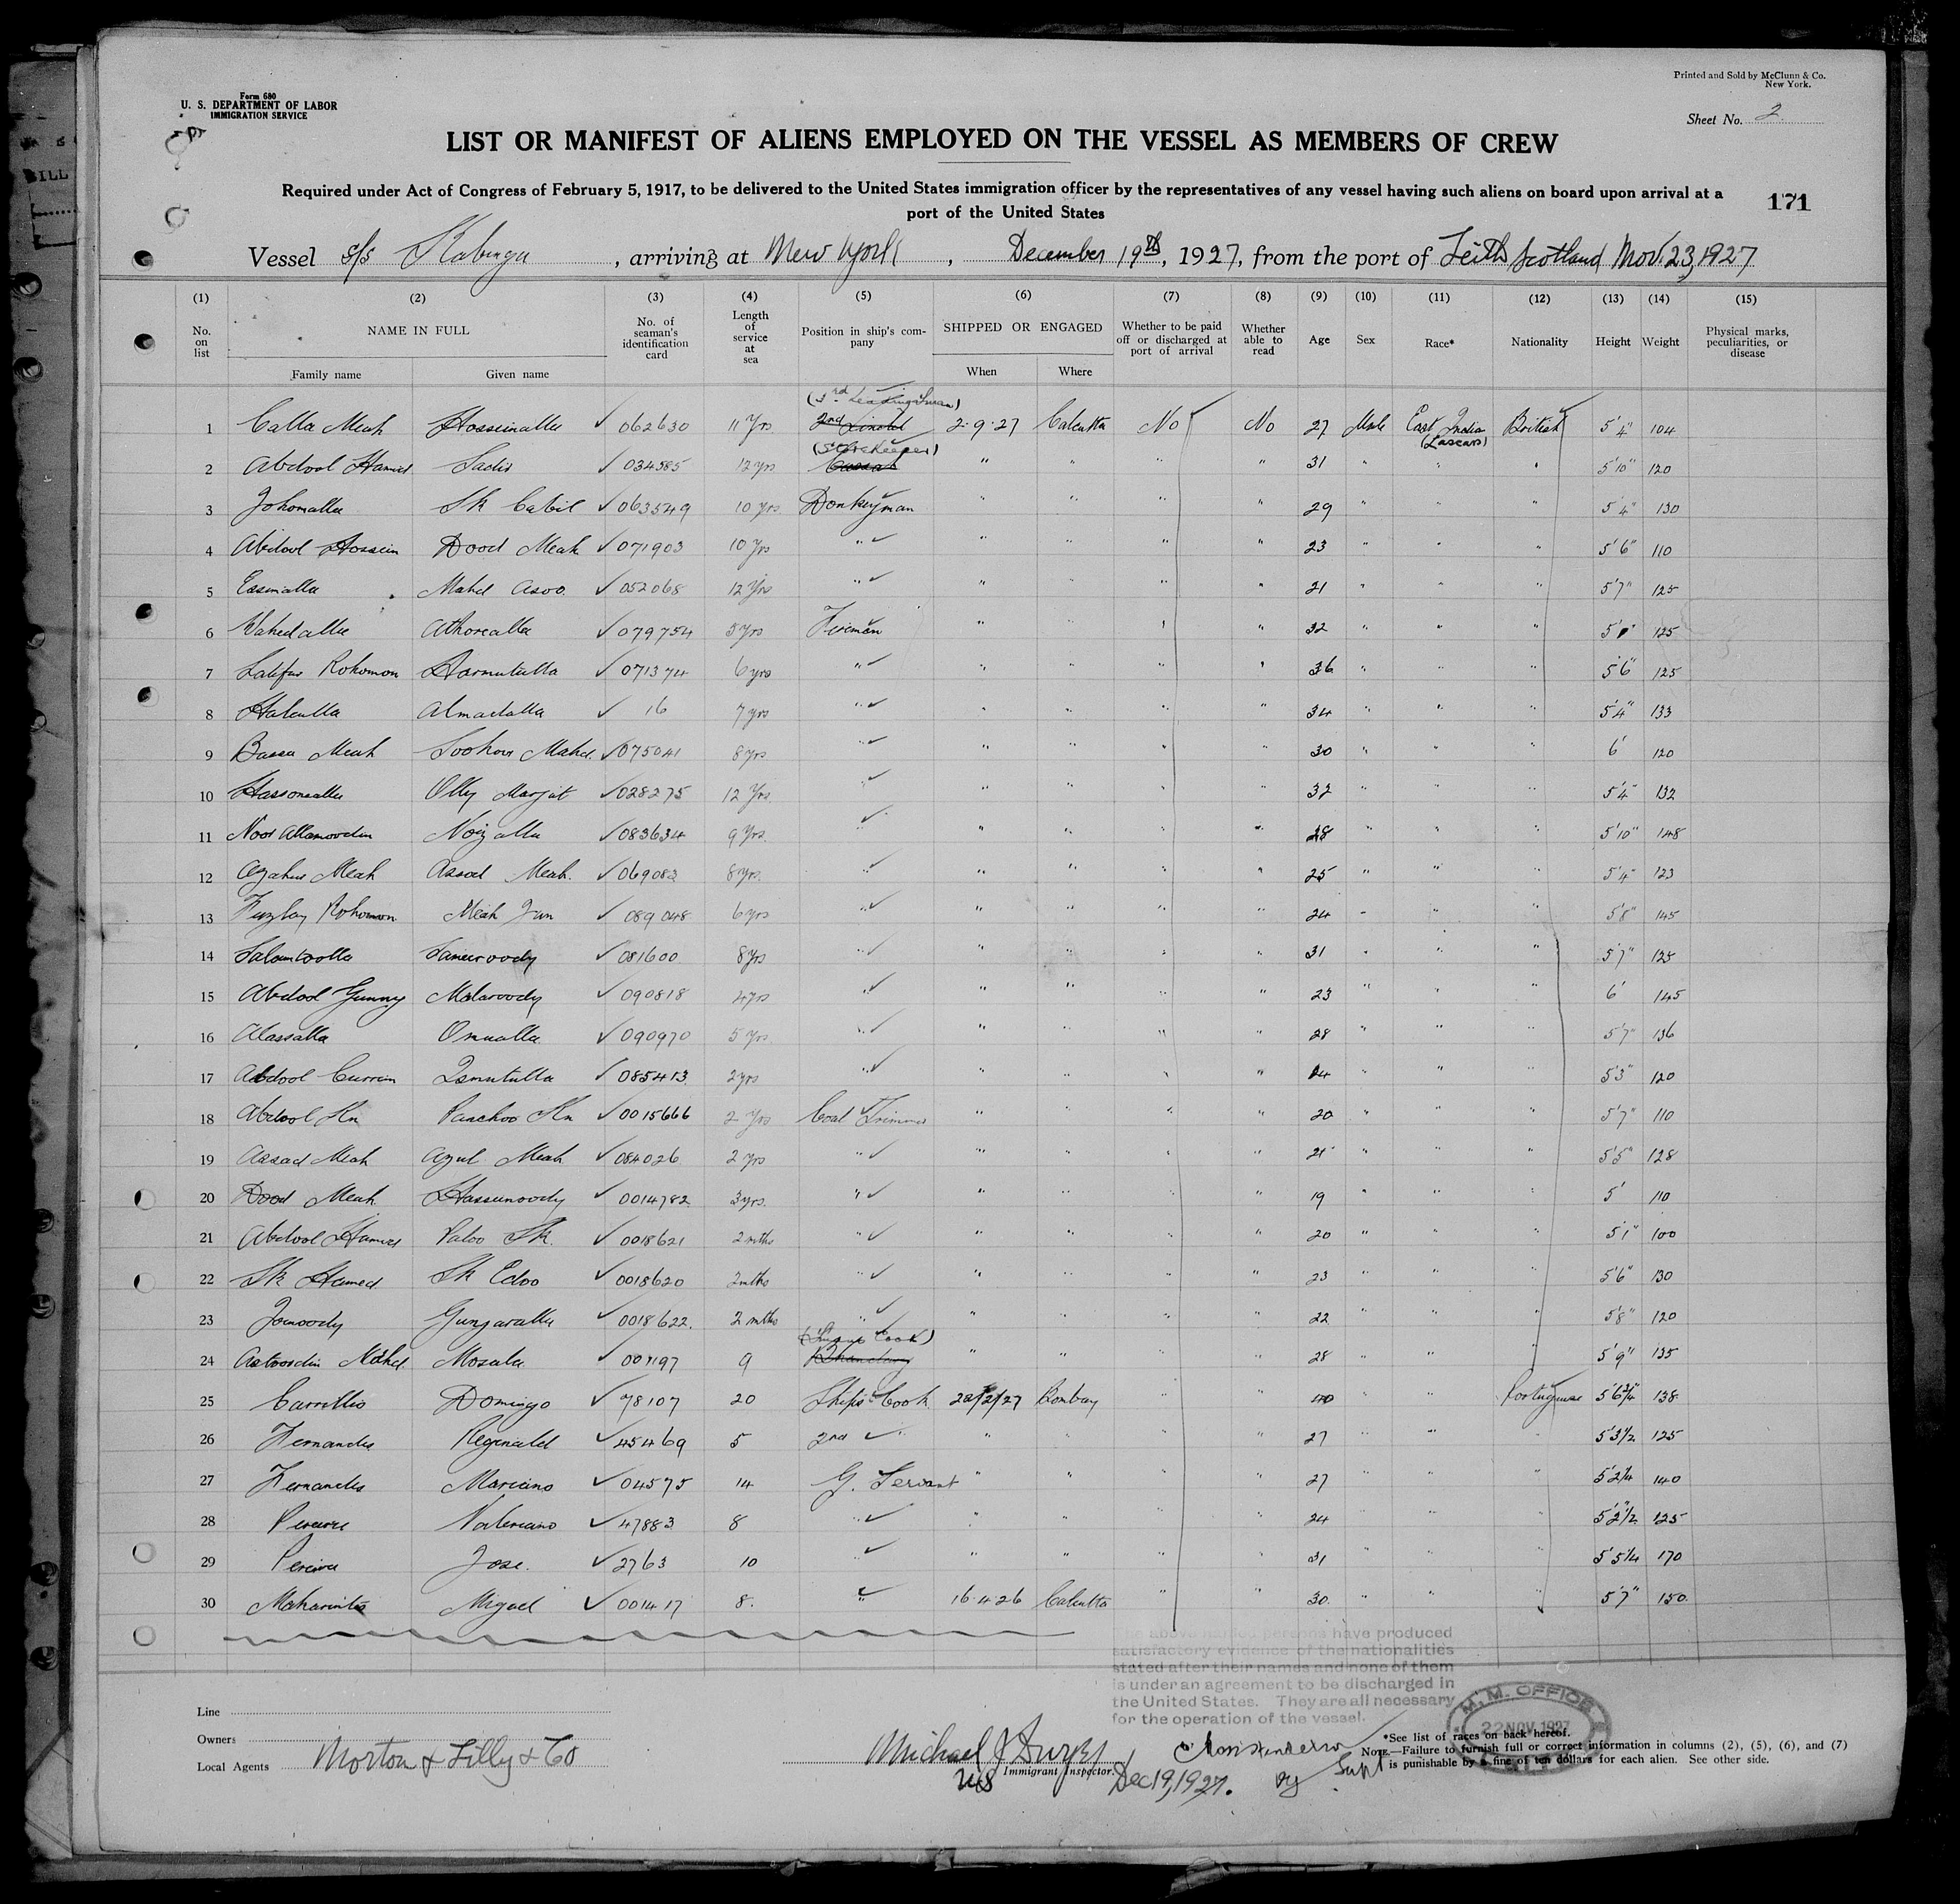 Form 680
U. S. DEPARTMENT OF LABOR
IMMIGRATION SERVICE
Printed and Sold by McClunn & Co.
New York.
Sheet No. 2
LIST OR MANIFEST OF ALIENS EMPLOYED ON THE VESSEL AS MEMBERS OF CREW
Required under Act of Congress of February 5, 1917, to be delivered to the United States immigration officer by the representatives of any vessel having such aliens on board upon arrival at a
port of the United States
171
Vessel s/s Kabinga, arriving at New York, December 19th, 1927, from the port of Leith Scotland Nov. 23, 1927
(1) (2) (3) (4) (5) (6) (7) (8) (9) (10) (11) (12) (13) (14) (15)
No. on list NAME IN FULL No. of seaman's identification card Length of service at sea Position in ship's company SHIPPED OR ENGAGED Whether to be paid off or discharged at port of arrival Whether able to read Age Sex Race* Nationality Height Weight Physical marks, peculiarities, or disease
Family name Given name When Where
1 Calla Meah Hosseinalla ✓ 062630 11 Yrs 2nd 2.9.27 Calcutta No No 27 Male East Indian (Lascars) British 5'4" 104
(Storekeeper)
2 Abdool Hamid Sadir ✓ 034585 12 yrs Cassab " " " " 31 " " " 5'10" 120
3 Johomalla Sk Cabil ✓ 063549 10 yrs Donkeyman " " " " 29 " " " 5'4" 130
4 Abdool Hossein Dood Meah ✓ 071903 10 Yrs " " " " " 23 " " " 5'6" 110
5 Essinalla Mahd Asoo. ✓ 052068 12 Yrs " " " " " 21 " " " 5'7" 125
6 Wahedalla Athorealla ✓ 079754 5 yrs Fireman " " " " 32 " " " 125
7 Latifur Rohomon ✓ 071374 6 yrs " " " " " 36 " " " 5'6" 125
8 Almadalla ✓ 16 7 yrs " " " " " 34 " " " 5'4" 133
9 Bassa Meah Mahd. ✓ 075041 8 yrs " " " " " 30 " " " 6' 120
10 Hassonealla Olly ✓ 028275 12 Yrs " " " " " 32 " " " 5'4" 132
11 Noor Allamoodin Noizalla ✓ 083634 9 Yrs. " " " " " 28 " " " 5'10" 148
12 Meah Assod Meah. ✓ 069083 8 yrs. " " " " " 25 " " " 5'4" 123
13 Rohomon Meah Jan ✓ 089048 6 yrs " " " " " 24 " " " 5'8" 145
14 ✓ 081600 8 yrs " " " " " 31 " " " 5'7" 125
15 Abdool Gunny ✓ 090818 4 yrs " " " " " 23 " " " 6' 145
16 Alassalla Omualla ✓ 090970 5 yrs " " " " " 28 " " " 5'7" 136
17 Abdool Currim ✓ 085413 2 yrs " " " " " 24 " " " 5'3" 120
18 Abdool Kn Panchoo Kn ✓ 0015666 2 Yrs Coal Trimmer " " " " 20 " " " 5'7" 110
19 Assad Meah Azul Meah ✓ 084026 2 yrs " " " " " 21 " " " 5'5" 128
20 Dood Meah Hassunoody ✓ 0014782 3 yrs. " " " " " 19 " " " 5' 110
21 Abdool Hamid Paloo Sk. ✓ 0018621 2 mths " " " " " 20 " " " 5'1" 100
22 Sk Hamed Sk Edoo ✓ 0018620 2 mths " " " " " 23 " " " 5'6" 130
23 Jomoody ✓ 0018622 2 mths " " " " " 22 " " " 5'8" 120
24 Mahd. Mosala ✓ 9 Bhandary " " " " 28 " " " 5'9" 135
25 Carrillio Domingo ✓ 78107 20 Ship's Cook Bombay " " " " Portuguese 5'6¾" 138
26 Fernandes Reginald ✓ 45469 5 2nd " " " " " 27 " " " 5'3½ 125
27 Fernandes Mariano ✓ 04575 14 G. Servant " " " " 27 " " " 5'2¼ 140
28 Pereira Valeriano ✓ 47883 8 " " " " " 24 " " " 5'2½ 125
29 Pereira Jose. ✓ 2763 10 " " " " " 31 " " " 5'5¼ 170
30 Miguel ✓ 001417 8. " 16.4.26 Calcutta " " 30. " " " 5'7" 150.
The above named persons have produced
satisfactory evidence of the nationalities
stated after their names and none of them
is under an agreement to be discharged in
the United States. They are all necessary
for the operation of the vessel.
M.M. OFFICE
22 NOV 1927
LEITH
Line
Owners
Local Agents Morton & Lilly & Co
Michael J Dwyer
Immigrant Inspector.
Dec 19, 1927.
Henderson
by Supt
*See list of races on back hereof.
NOTE.—Failure to furnish full or correct information in columns (2), (5), (6), and (7)
is punishable by a fine of ten dollars for each alien. See other side.